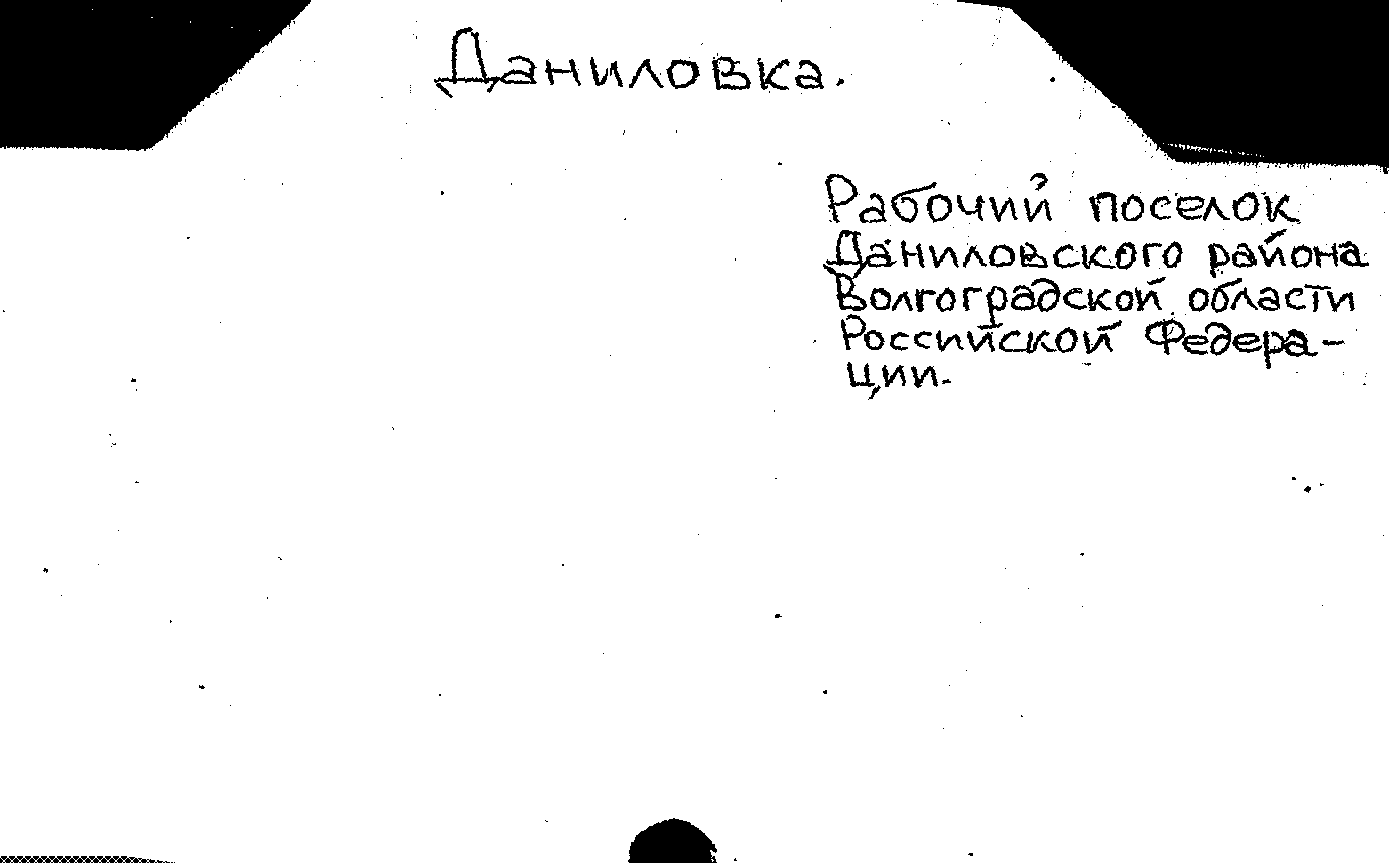 Даниловка.
Рабочий поселок
Даниловского района
Волгоградской области
Российской Федера-
ции.